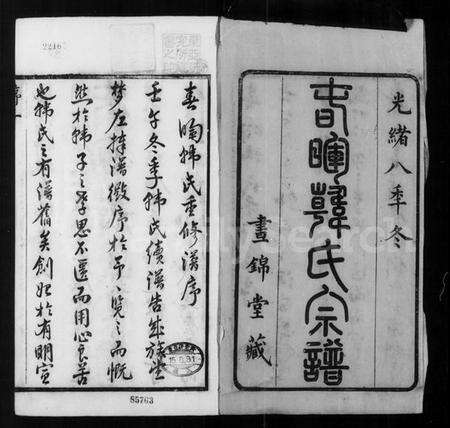 光緒八季冬
春暉韓氏宗譜
晝錦堂藏
春暉韓氏重修譜序
壬午冬季韓氏續譜告成族生
梦庄捧譜徵序於予予覽之而慨
然於韓子之孝思不匱而用心良苦
也韓氏之有譜舊矣創始於有明宣
序一
22167
85763